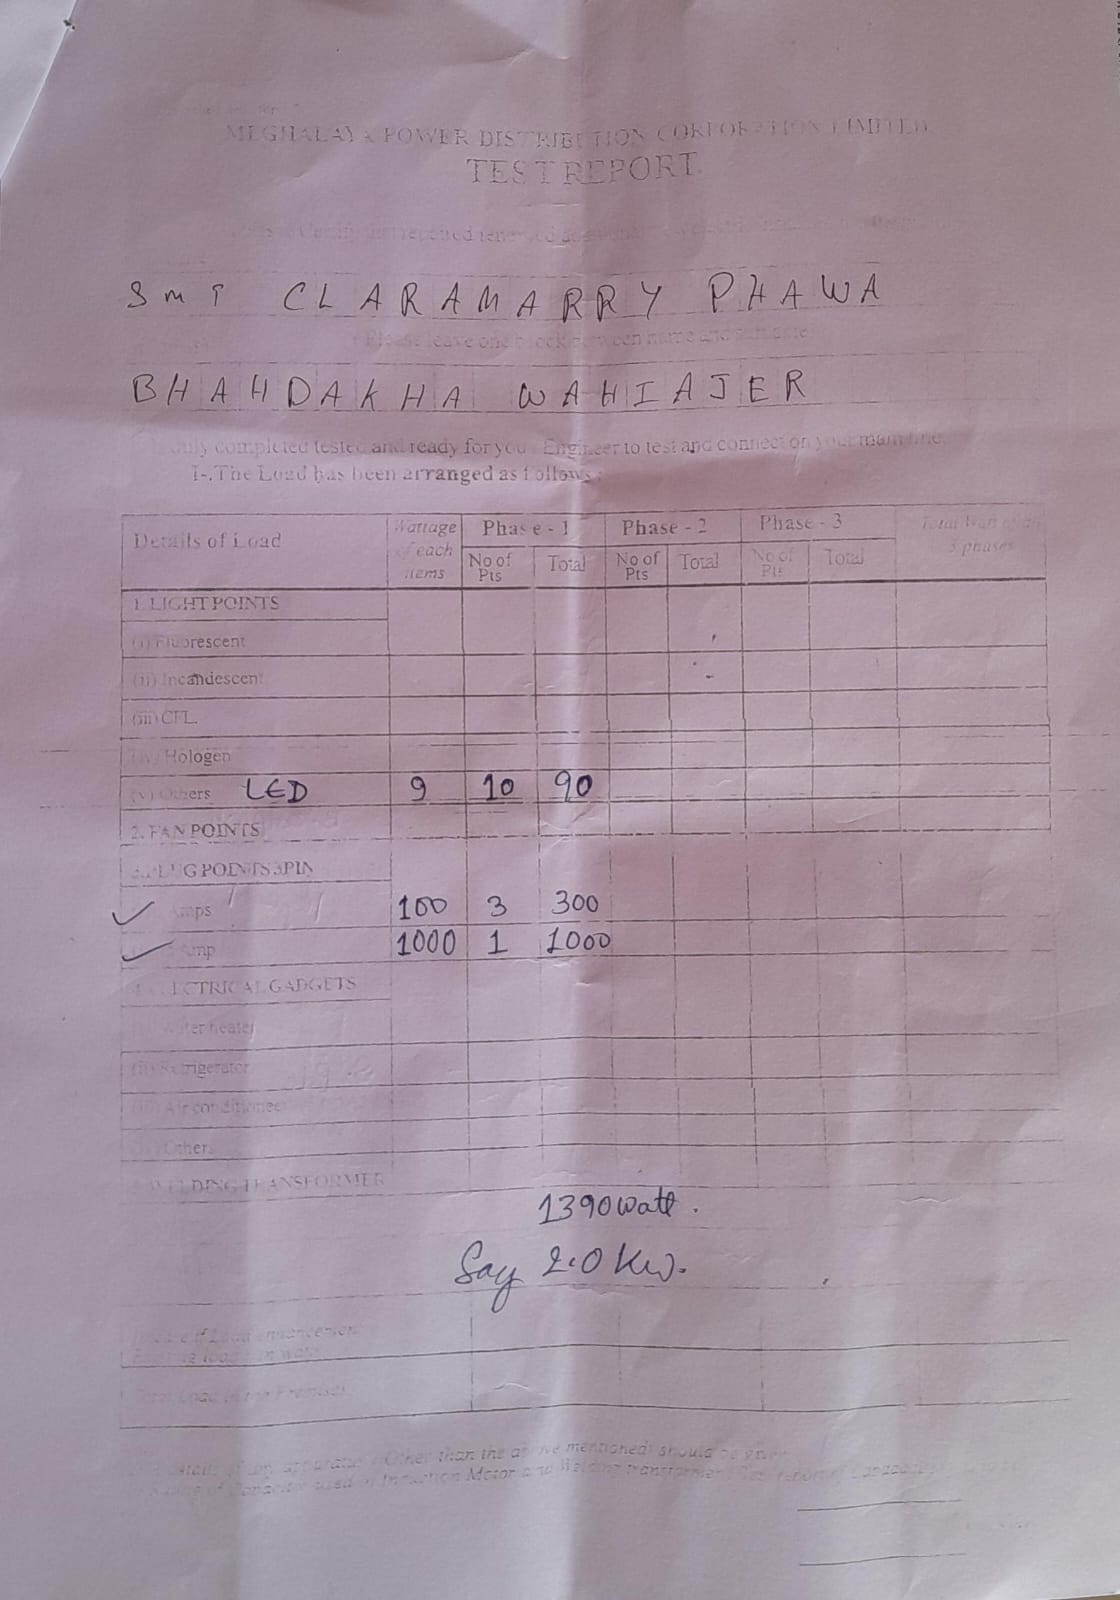 MEGHALAYA POWER DISTRIBUTION CORPORATION LIMITED
TEST REPORT
SMT CLARAMARRY PHAWA
(Please leave one block between name and
BHAHDAKHA WAHIAJER
completed tested and ready for your Engineer to test and connect on your main line.
1-.The Load has been arranged as follows:
Details of Load Wattage of each items Phase - 1 Phase - 2 Phase - 3 Total Watt of all 3 phases
No of Pts Total No of Pts Total No of Pts Total
1. LIGHT POINTS
(i) Fluorescent
(ii) Incandescent
(iii) CFL.
(iv) Hologen
(v) Others LED 9 10 90
2. FAN POINTS
3. PLUG POINTS 3PIN
Amps 100 3 300
Amp 1000 1 1000
4. ELECTRICAL GADGETS
Water heater
(ii) Refrigerator
(iii) Air conditioner
Others
WELDING TRANSFORMER
1390 watt.
Say 2.0 Kw.
Load enhancement
load in watt
Total Load in the Premises
apparatus (Other than the above mentioned) should be given
Capacitor used in Induction Motor and Welding transformer